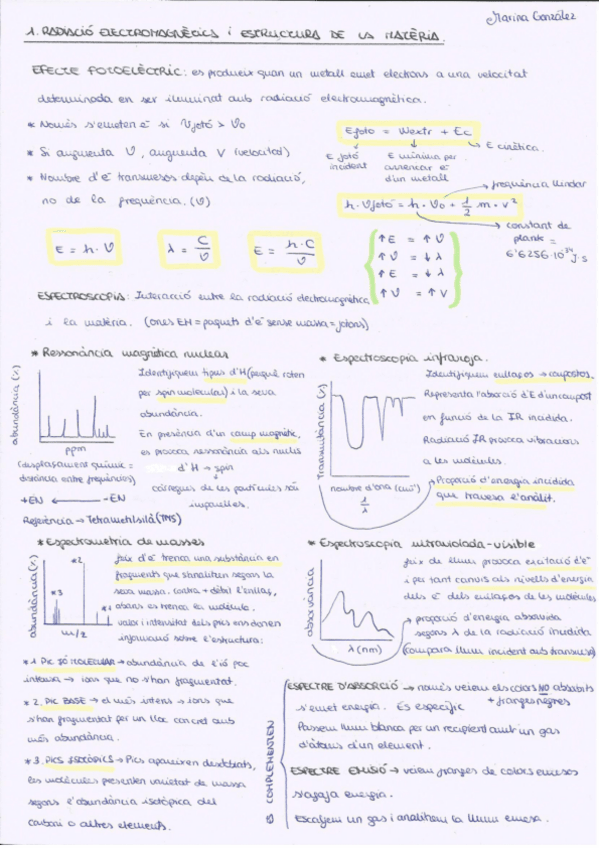 Marina González
1. RADIACIÓ ELECTROMAGNÈTICS i ESTRUCTURA DE LA MATÈRIA.
EFECTE FOTOELÈCTRIC: es produeix quan un metall emet electrons a una velocitat
determinada en ser il·luminat amb radiació electromagnètica.
* Només s'emeten e⁻ si νfotó > ν₀
* Si augmenta ν, augmenta v (velocitat)
* Nombre d'e⁻ transmesos depèn de la radiació,
no de la freqüència. (ν)
Efotó = Wextr + Ec
E fotó incident
E mínima per arrencar e⁻ d'un metall
E cinètica.
h·νfotó = h·ν₀ + 1/2 m·v²
freqüència llindar
constant de plank = 6'6256·10⁻³⁴ J·s
E = h·ν
λ = C/ν
E = h·C/ν
↑E = ↑ν
↑ν = ↓λ
↑E = ↓λ
↑ν = ↑v
ESPECTROSCÒPIA: Interacció entre la radiació electromagnètica
i la matèria. (ones EM = paquets d'e⁻ sense massa = fotons)
* Ressonància magnètica nuclear
abundància (%)
ppm
(desplaçament químic =
distància entre freqüències)
+EN ← -EN
Referència → Tetrametilsilà (TMS)
Identifiquem tipus d'H (perquè roten
per spin molecular) i la seva
abundància.
En presència d'un camp magnètic,
es provoca ressonància als nuclis
d'H → spin
càrregues de les partícules són
imparelles.
* Espectroscopia infraroja.
Transmitància (%)
nombre d'ona (cm⁻¹)
1/λ
Identifiquem enllaços → compostos.
Representa l'absorció d'E d'un compost
en funció de la IR incidida.
Radiació IR provoca vibracions
a les molècules.
Proporció d'energia incidida
que travessa l'anàlit.
* Espectrometria de masses
abundància (%)
*2
*3
*1
m/z
feix d'e⁻ trenca una substància en
fragments que s'analitzen segons la
seva massa. Contra + dèbil l'enllaç,
abans es trenca la molècula.
Valor i intensitat dels pics ens donen
informació sobre l'estructura:
* 1. PIC IÓ MOLECULAR → abundància de l'ió poc
intensa → ions que no s'han fragmentat.
* 2. PIC BASE → el més intens → ions que
s'han fragmentat per un lloc concret amb
més abundància.
* 3. PICS ISOTÒPICS → Pics apareixen desdoblats,
les molècules presenten varietat de massa
segons l'abundància isotòpica del
carboni o altres elements.
* Espectroscopia ultraviolada-visible
absorvància
λ (nm)
feix de llum provoca excitació d'e⁻
i per tant canvis als nivells d'energia
dels e⁻ dels enllaços de les molècules
proporció d'energia absorvida
segons λ de la radiació incidida
(compara llum incident amb transmesa)
ES COMPLEMENTEN
ESPECTRE D'ABSORCIÓ → només veiem els colors NO absorbits
+ franges negres
s'emet energia. És específic
Passem llum blanca per un recipient amb un gas
d'àtoms d'un element.
ESPECTRE EMISIÓ → veiem franges de colors emesos
s'agafa energia.
Escalfem un gas i analitzem la llum emesa.